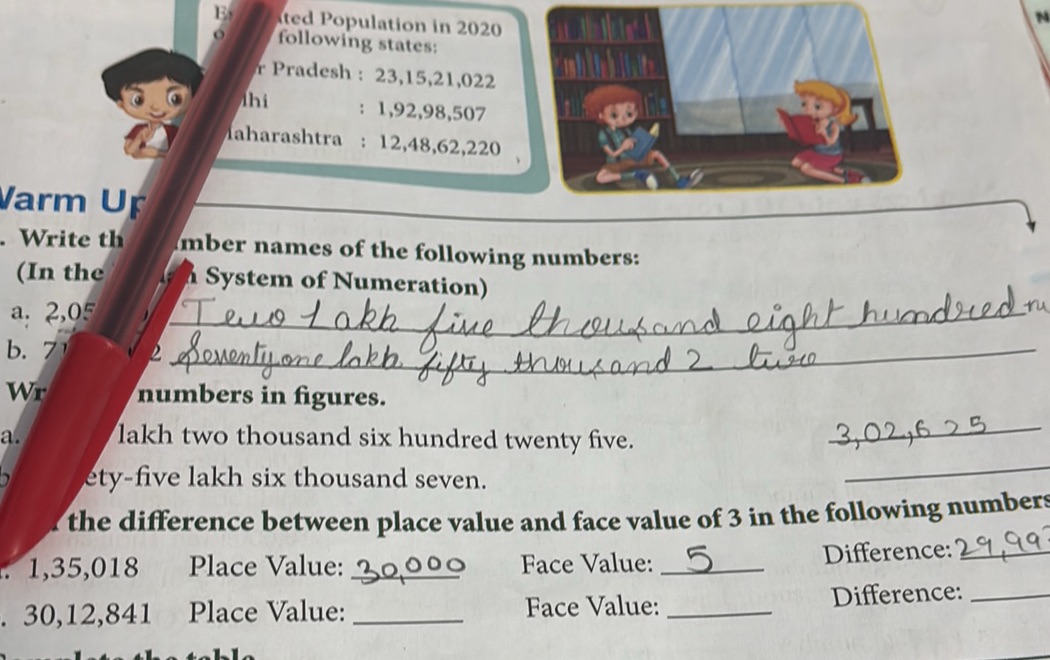 ted Population in 2020
following states:
r Pradesh : 23,15,21,022
lhi : 1,92,98,507
aharashtra : 12,48,62,220
Warm Up
. Write th mber names of the following numbers:
(In the n System of Numeration)
a. 2,05 Two Lakh five thousand eight hundred
b. 71 2 Seventy one lakh fifty thousand 2 two
Wr numbers in figures.
a. lakh two thousand six hundred twenty five. 3,02,625
ety-five lakh six thousand seven.
the difference between place value and face value of 3 in the following numbers
. 1,35,018 Place Value: 30,000 Face Value: 5 Difference: 29,99
. 30,12,841 Place Value: Face Value: Difference: